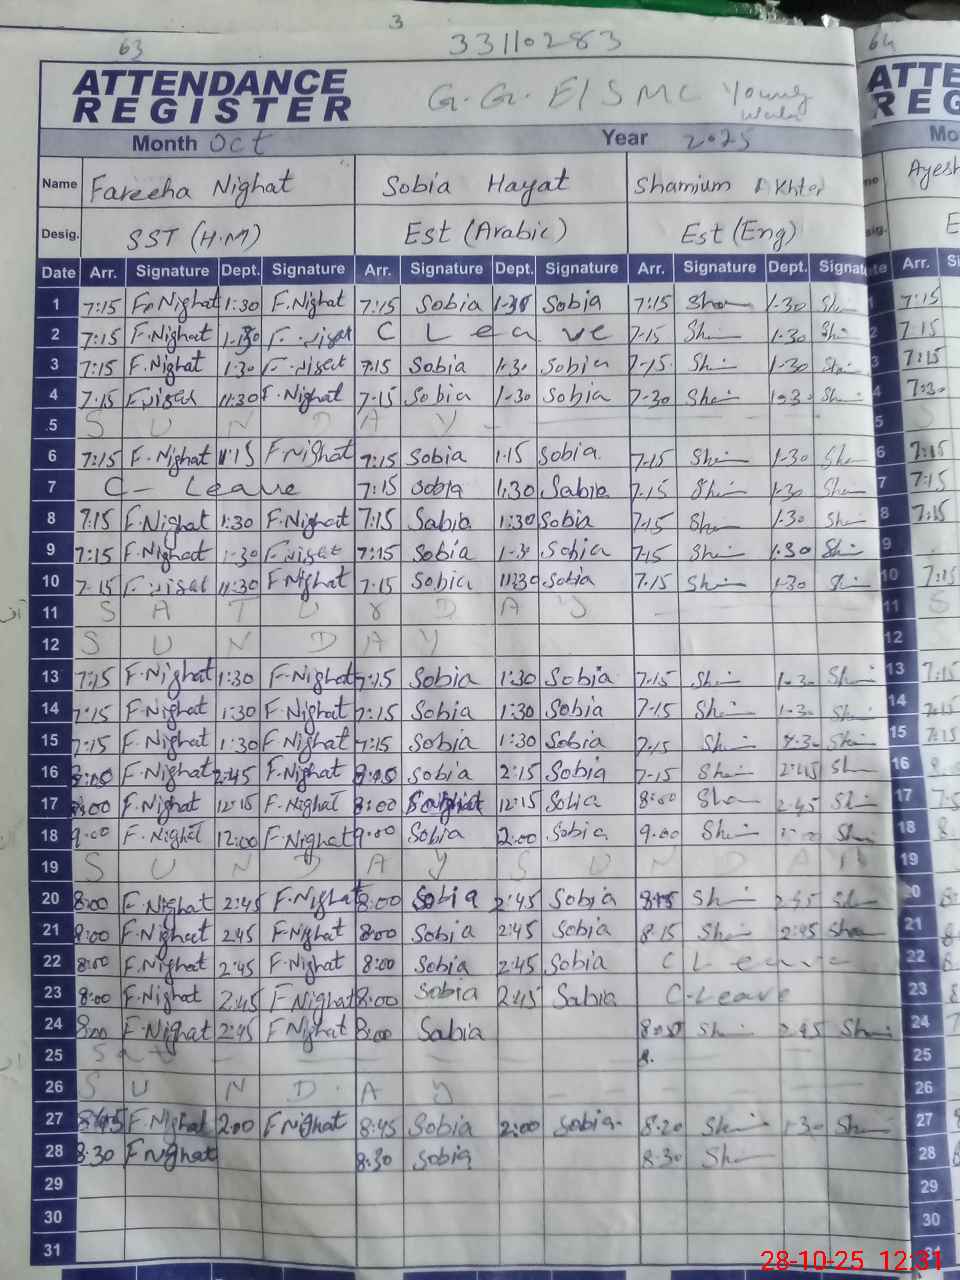 3
63 33110283 64
ATTENDANCE REGISTER G.G.E/S MC Young
Month Oct Year 2025
Name Fareeha Nighat Sobia Hayat Shamium Akhter
Desig. SST (H.M) Est (Arabic) Est (Eng)
Date Arr. Signature Dept. Signature Arr. Signature Dept. Signature Arr. Signature Dept. Signat
1 7:15 F. Nighat 1:30 F.Nighat 7:15 Sobia 1-30 Sobia 7:15 Sha 1-30 Sh 7:15
2 7:15 F.Nighat 1-30 C Leave 7-15 Sh 1-30 Sh 7:15
3 7:15 F.Nighat 1:30 7:15 Sobia 1:30 Sobia 7-15 Sh 1-30 Sh 7:15
4 7:15 11:30 F.Nighat 7-15 Sobia 1-30 Sobia 7-30 She 1:30 Sh 7:30
5 S U N D A Y
6 7:15 F.Nighat 1:15 F Nighat 7:15 Sobia 1:15 Sobia 7-15 Sh 1-30 Sh 7:15
7 C- Leave 7:15 Sobia 1:30 Sobia 7-15 Sh 1-30 Sh 7:15
8 7:15 F.Nighat 1:30 F.Nighat 7:15 Sobia 1:30 Sobia 7-15 Sh 1-30 Sh 7:15
9 7:15 F.Nighat 1-30 7:15 Sobia 1-3 Sobia 7-15 Sh 1:30 Sh
10 7-15 11:30 F Nighat 7-15 Sobia 11:30 Sobia 7:15 Sh 1-30 Sh 7:15
11 S A T U R D A Y
12 S U N D A Y
13 7:15 F.Nighat 1:30 F.Nighat 7:15 Sobia 1:30 Sobia 7-15 Sh 1-30 Sh 7:15
14 7:15 F.Nighat 1:30 F.Nighat 7:15 Sobia 1:30 Sobia 7-15 Sh 1-30 Sh 7:15
15 7:15 F.Nighat 1:30 F.Nighat 7:15 Sobia 1:30 Sobia 7-15 Sh Sh 7:15
16 8:00 F.Nighat 2:45 F.Nighat 8:00 Sobia 2:15 Sobia 7-15 Sh 2:45 Sh
17 8:00 F.Nighat 12:15 F-Nighat 8:00 12:15 Sobia 8:00 Sha 2-45 Sh
18 9:00 F.Nighat 12:00 F.Nighat 9:00 Sobia 2:00 Sobia 9-00 Sh Sh
19 S U N D A Y S U N D A Y
20 8:00 F.Nighat 2:45 F.Nighat 8:00 Sobia 2:45 Sobia 8:15 Sh 2:45 Sh
21 8:00 F.Nighat 2:45 F.Nighat 8:00 Sobia 2:45 Sobia 8-15 Sh 2:45 Sha
22 8:00 F.Nighat 2:45 F.Nighat 8:00 Sobia 2:45 Sobia C Leave
23 8:00 F.Nighat 2:45 F Nighat 8:00 Sobia 2:45 Sobia C-Leave
24 8:00 F.Nighat 2:45 F Nighat 8:00 Sobia Sh 2:45 Sh
25 Sat 8.
26 S U N D A Y
27 8:45 F.Nighat 2:00 F Nighat 8:45 Sobia 2:00 Sobia 8-20 Sh 1-30 Sh
28 8:30 F Nighat 8:30 Sobia 8-30 Sh
29
30
31
28-10-25 12:31